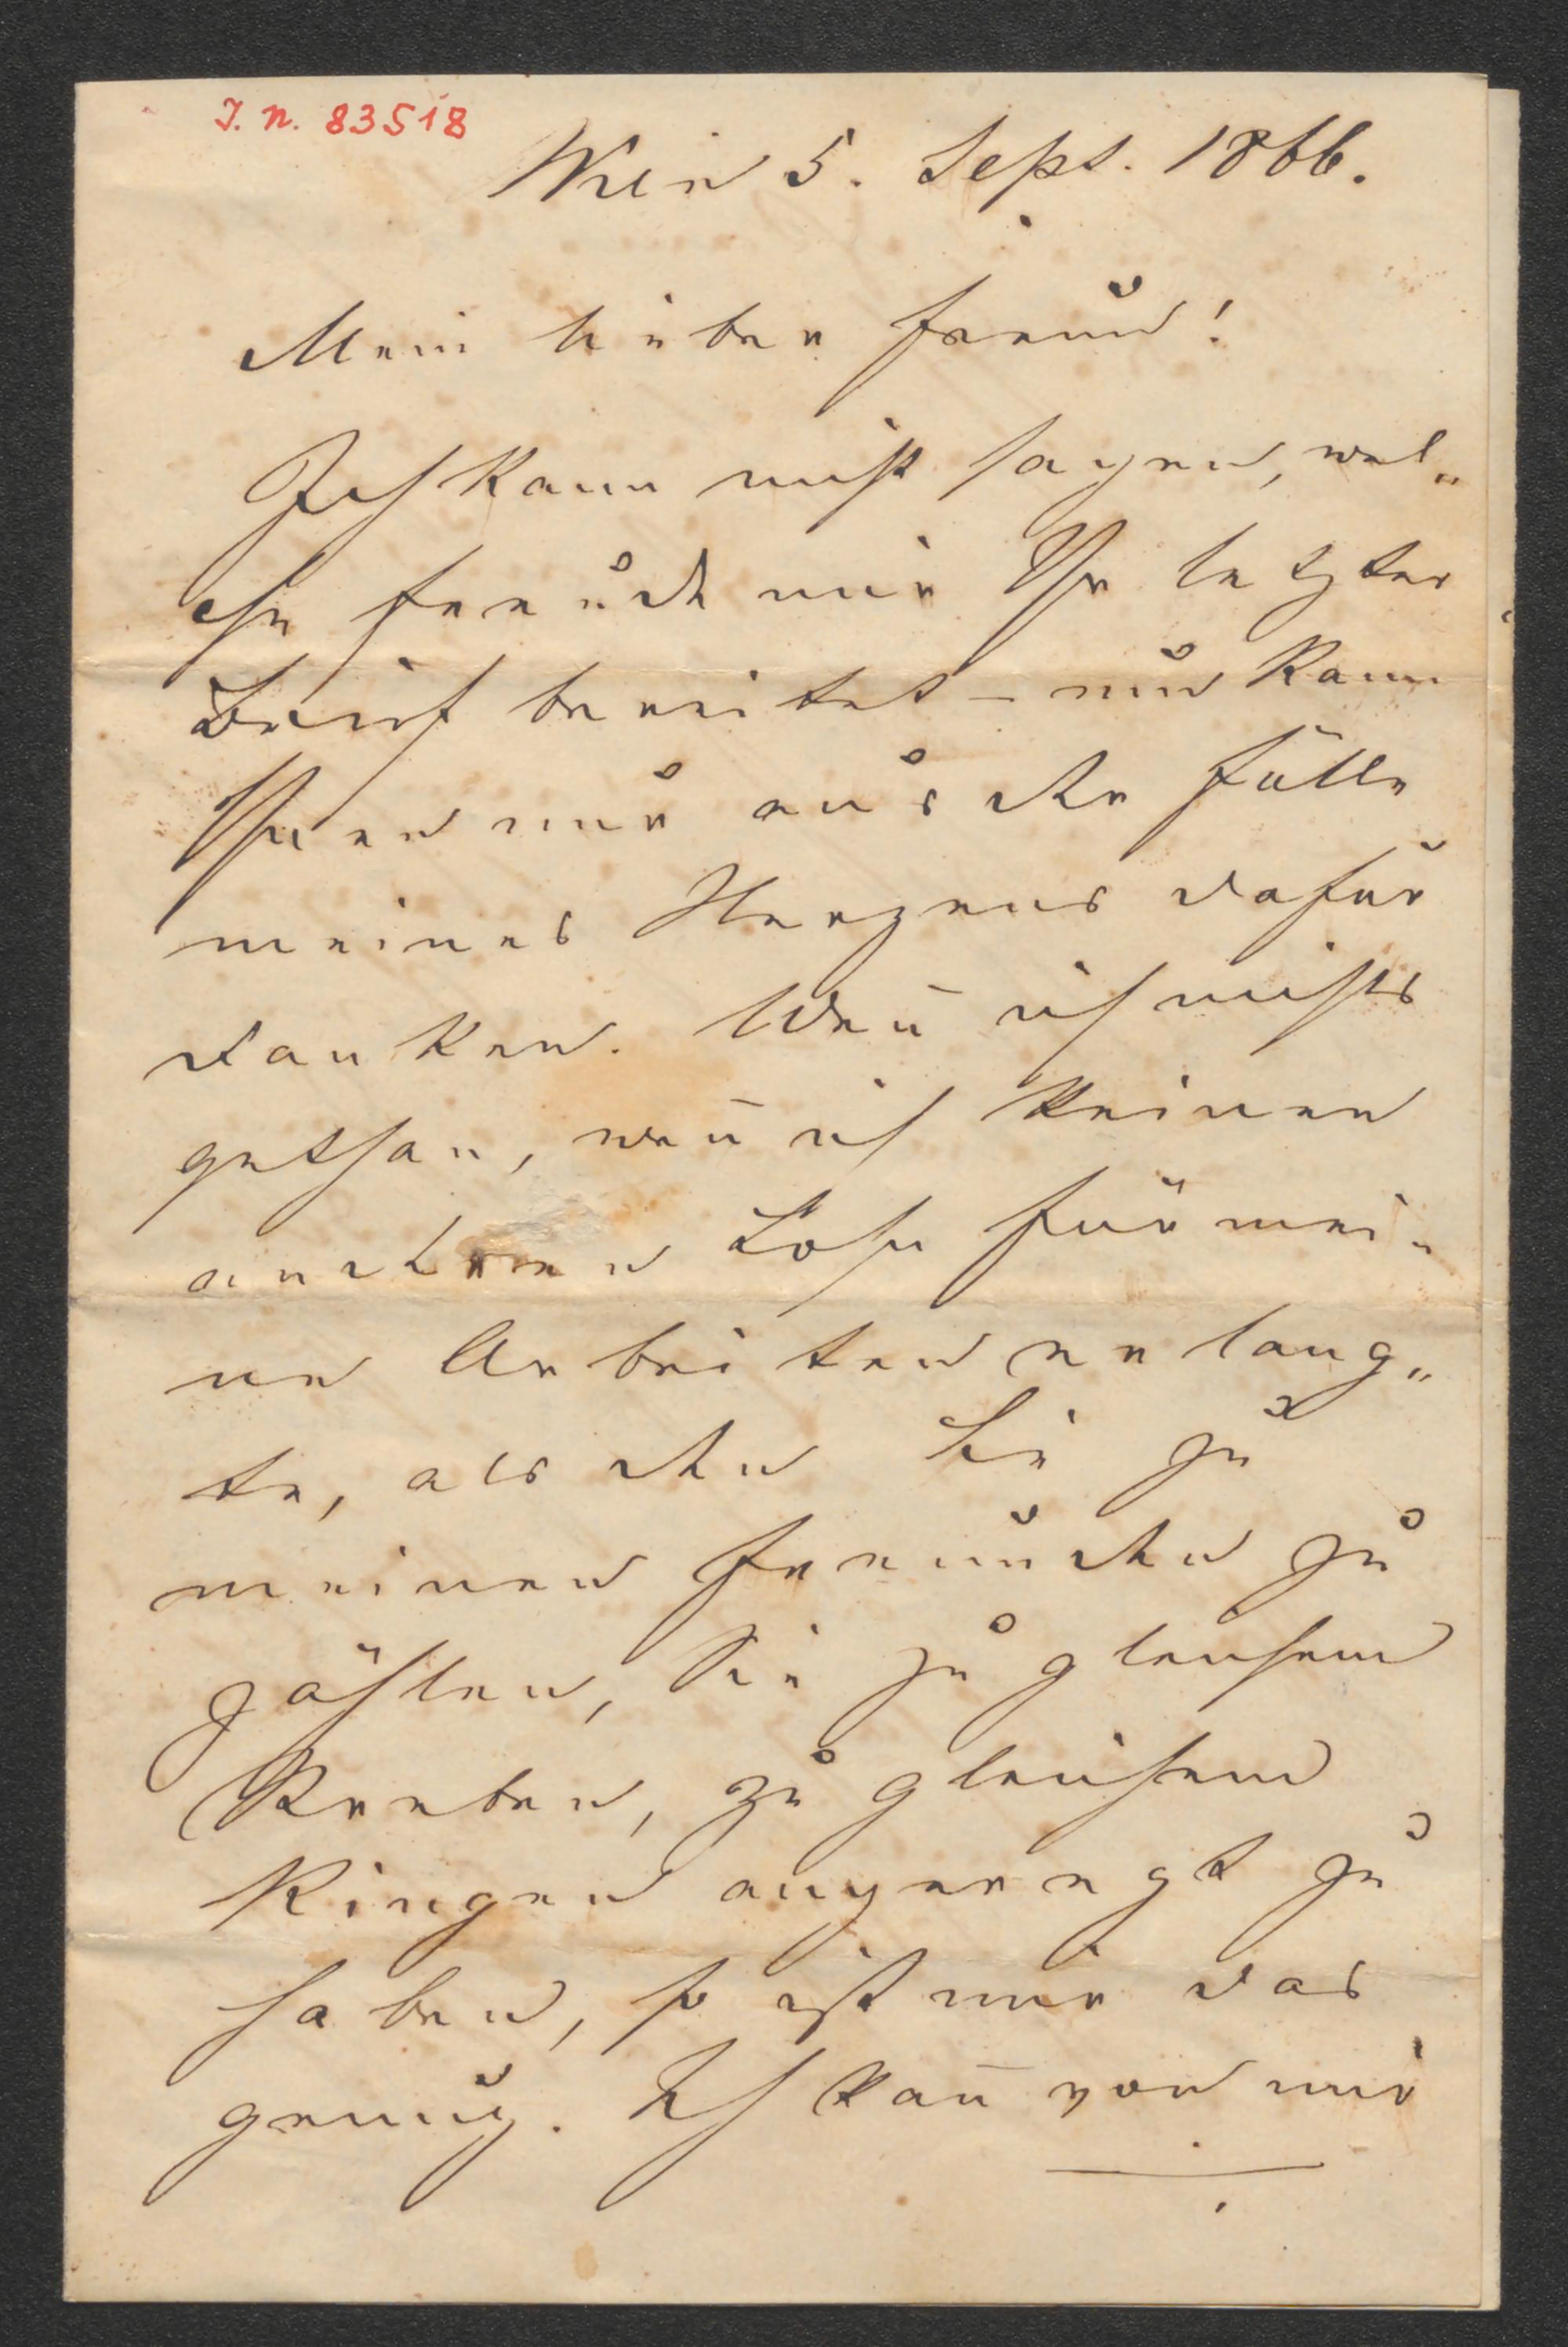 I. N. 83518
Wien 5. Sept. 1866.
Mein lieber Freund!
Ich kann nicht sagen, wel„
che Freude mir Ihr letzter
Brief bereitet – und kann
Ihnen nur aus der Fülle
meines Herzens dafür
danken. Weñ ich nichts
gethan, weñ ich keinen
anderen Lohn für mei„
ne Arbeiten erlang„
te, als den Sie zu
meinen Freunden zu
zählen, Sie zu gleichem
Streben, zu gleichem
Ringen angeregt zu
haben, so ist mir das
genug. Ich kañ von mir